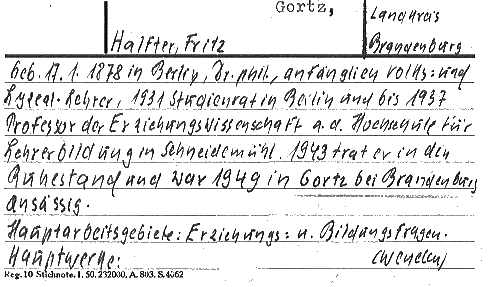 Gortz,
Landkreis
Halfter, Fritz
Brandenburg
Geb. 17.1.1878 in Berlin, Dr. phil., anfänglich Volks= und
Lyzeal-Lehrer, 1931 Studienrat in Berlin und bis 1937
Professor der Erziehungswissenschaft a.d. Hochschule für
Lehrerbildung in Schneidemühl. 1943 trat er in den
Ruhestand und war 1949 in Gortz bei Brandenburg
ansässig.
Hauptarbeitsgebiete: Erziehungs= u. Bildungsfragen.
Hauptwerke: (wenden)
Reg. 10 Stichnote. I, 50. 232000. A. 803. S. 4662